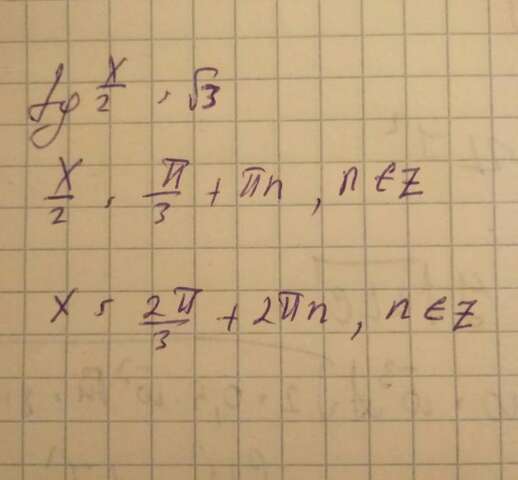 tg x/2 = √3
x/2 = π/3 + πn, n ∈ Z
x = 2π/3 + 2πn, n ∈ Z